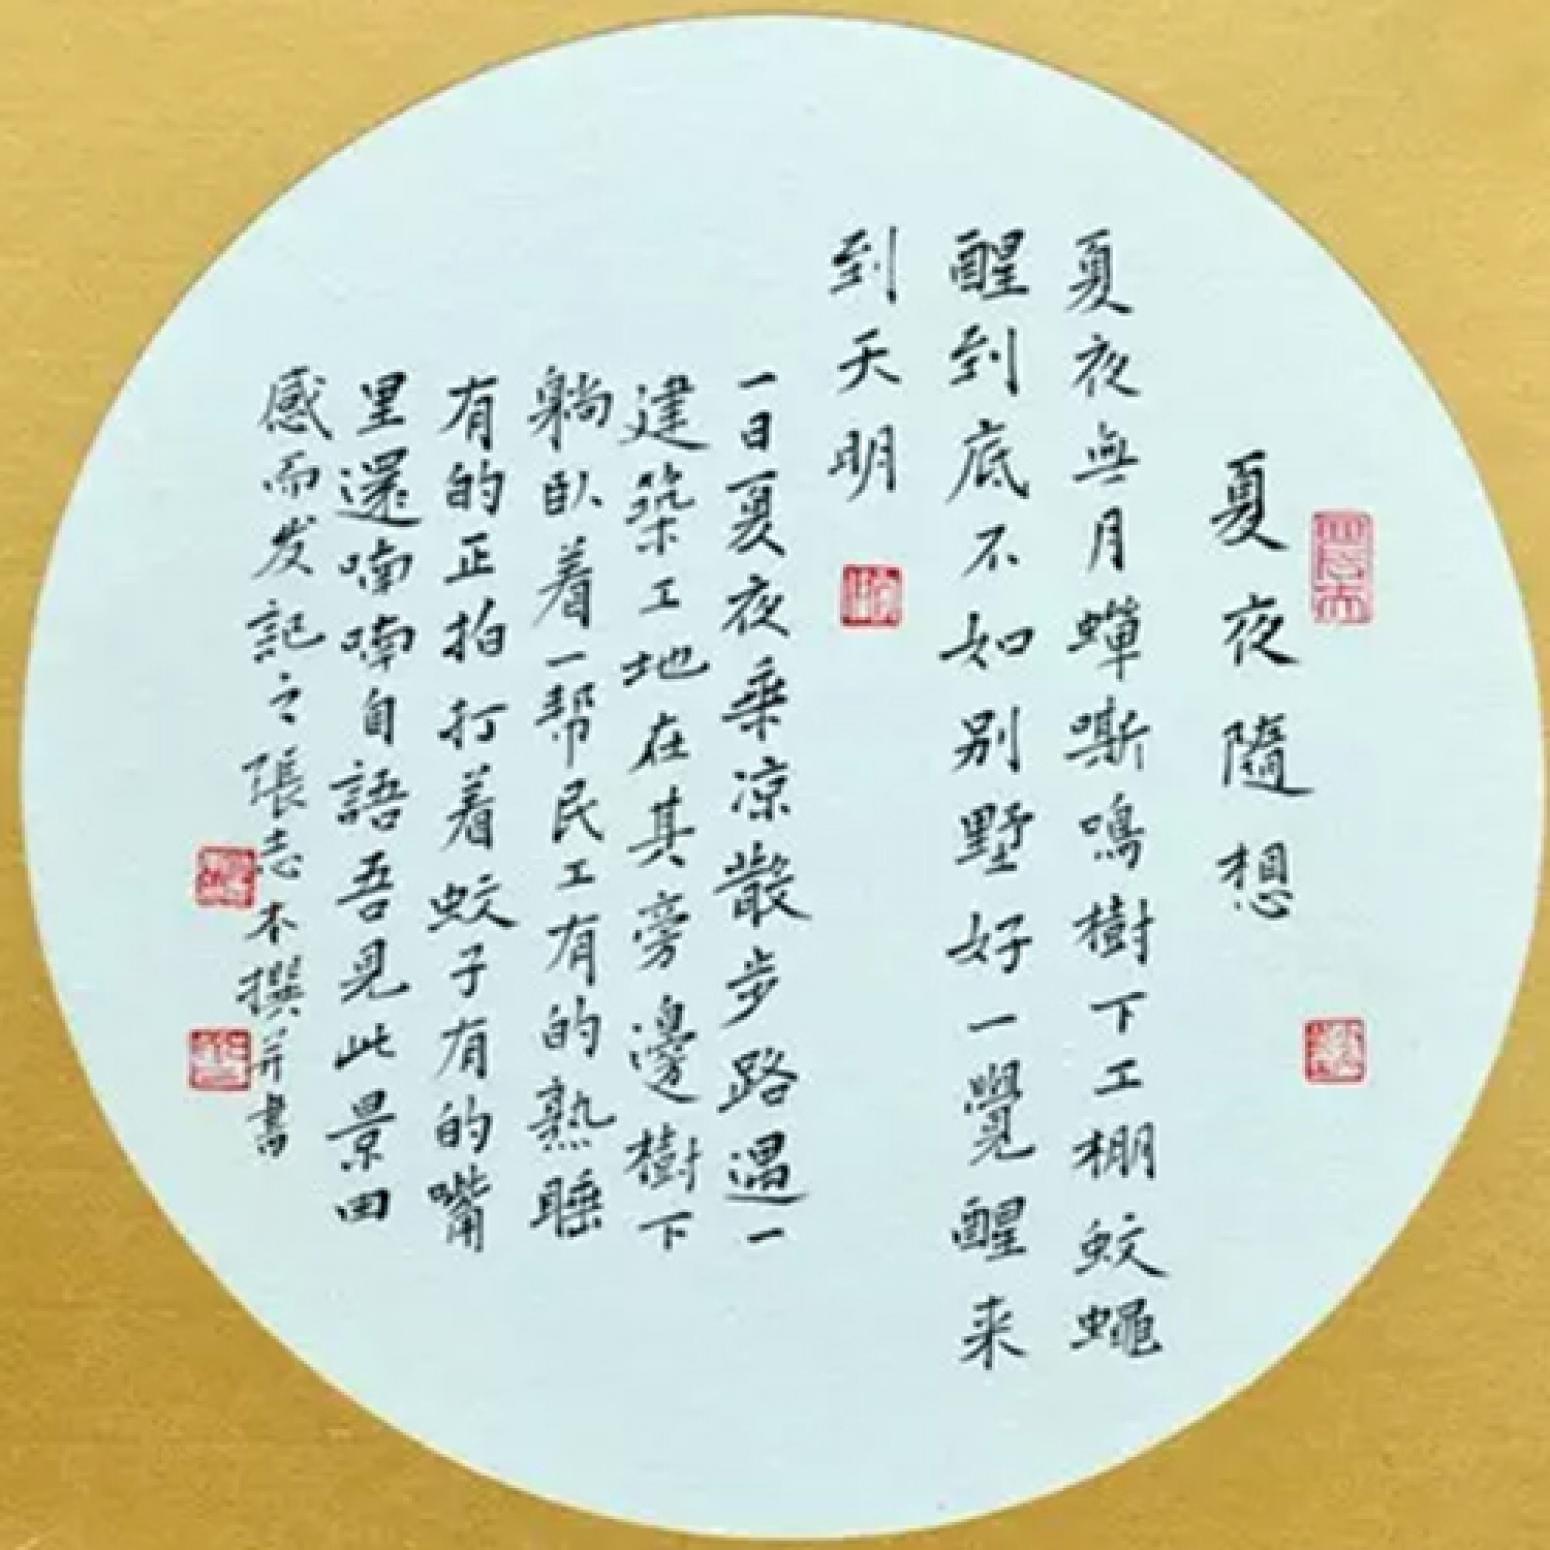 夏夜隨想
夏夜無月蟬嘶鳴樹下工棚蚊蠅
醒到底不如别墅好一覺醒来
到天明
一日夏夜乘凉散步路過一
建築工地在其旁邊樹下
躺臥着一帮民工有的熟睡
有的正拍打着蚊子有的嘴
里還喃喃自語吾見此景因
感而发記之張志本撰并書